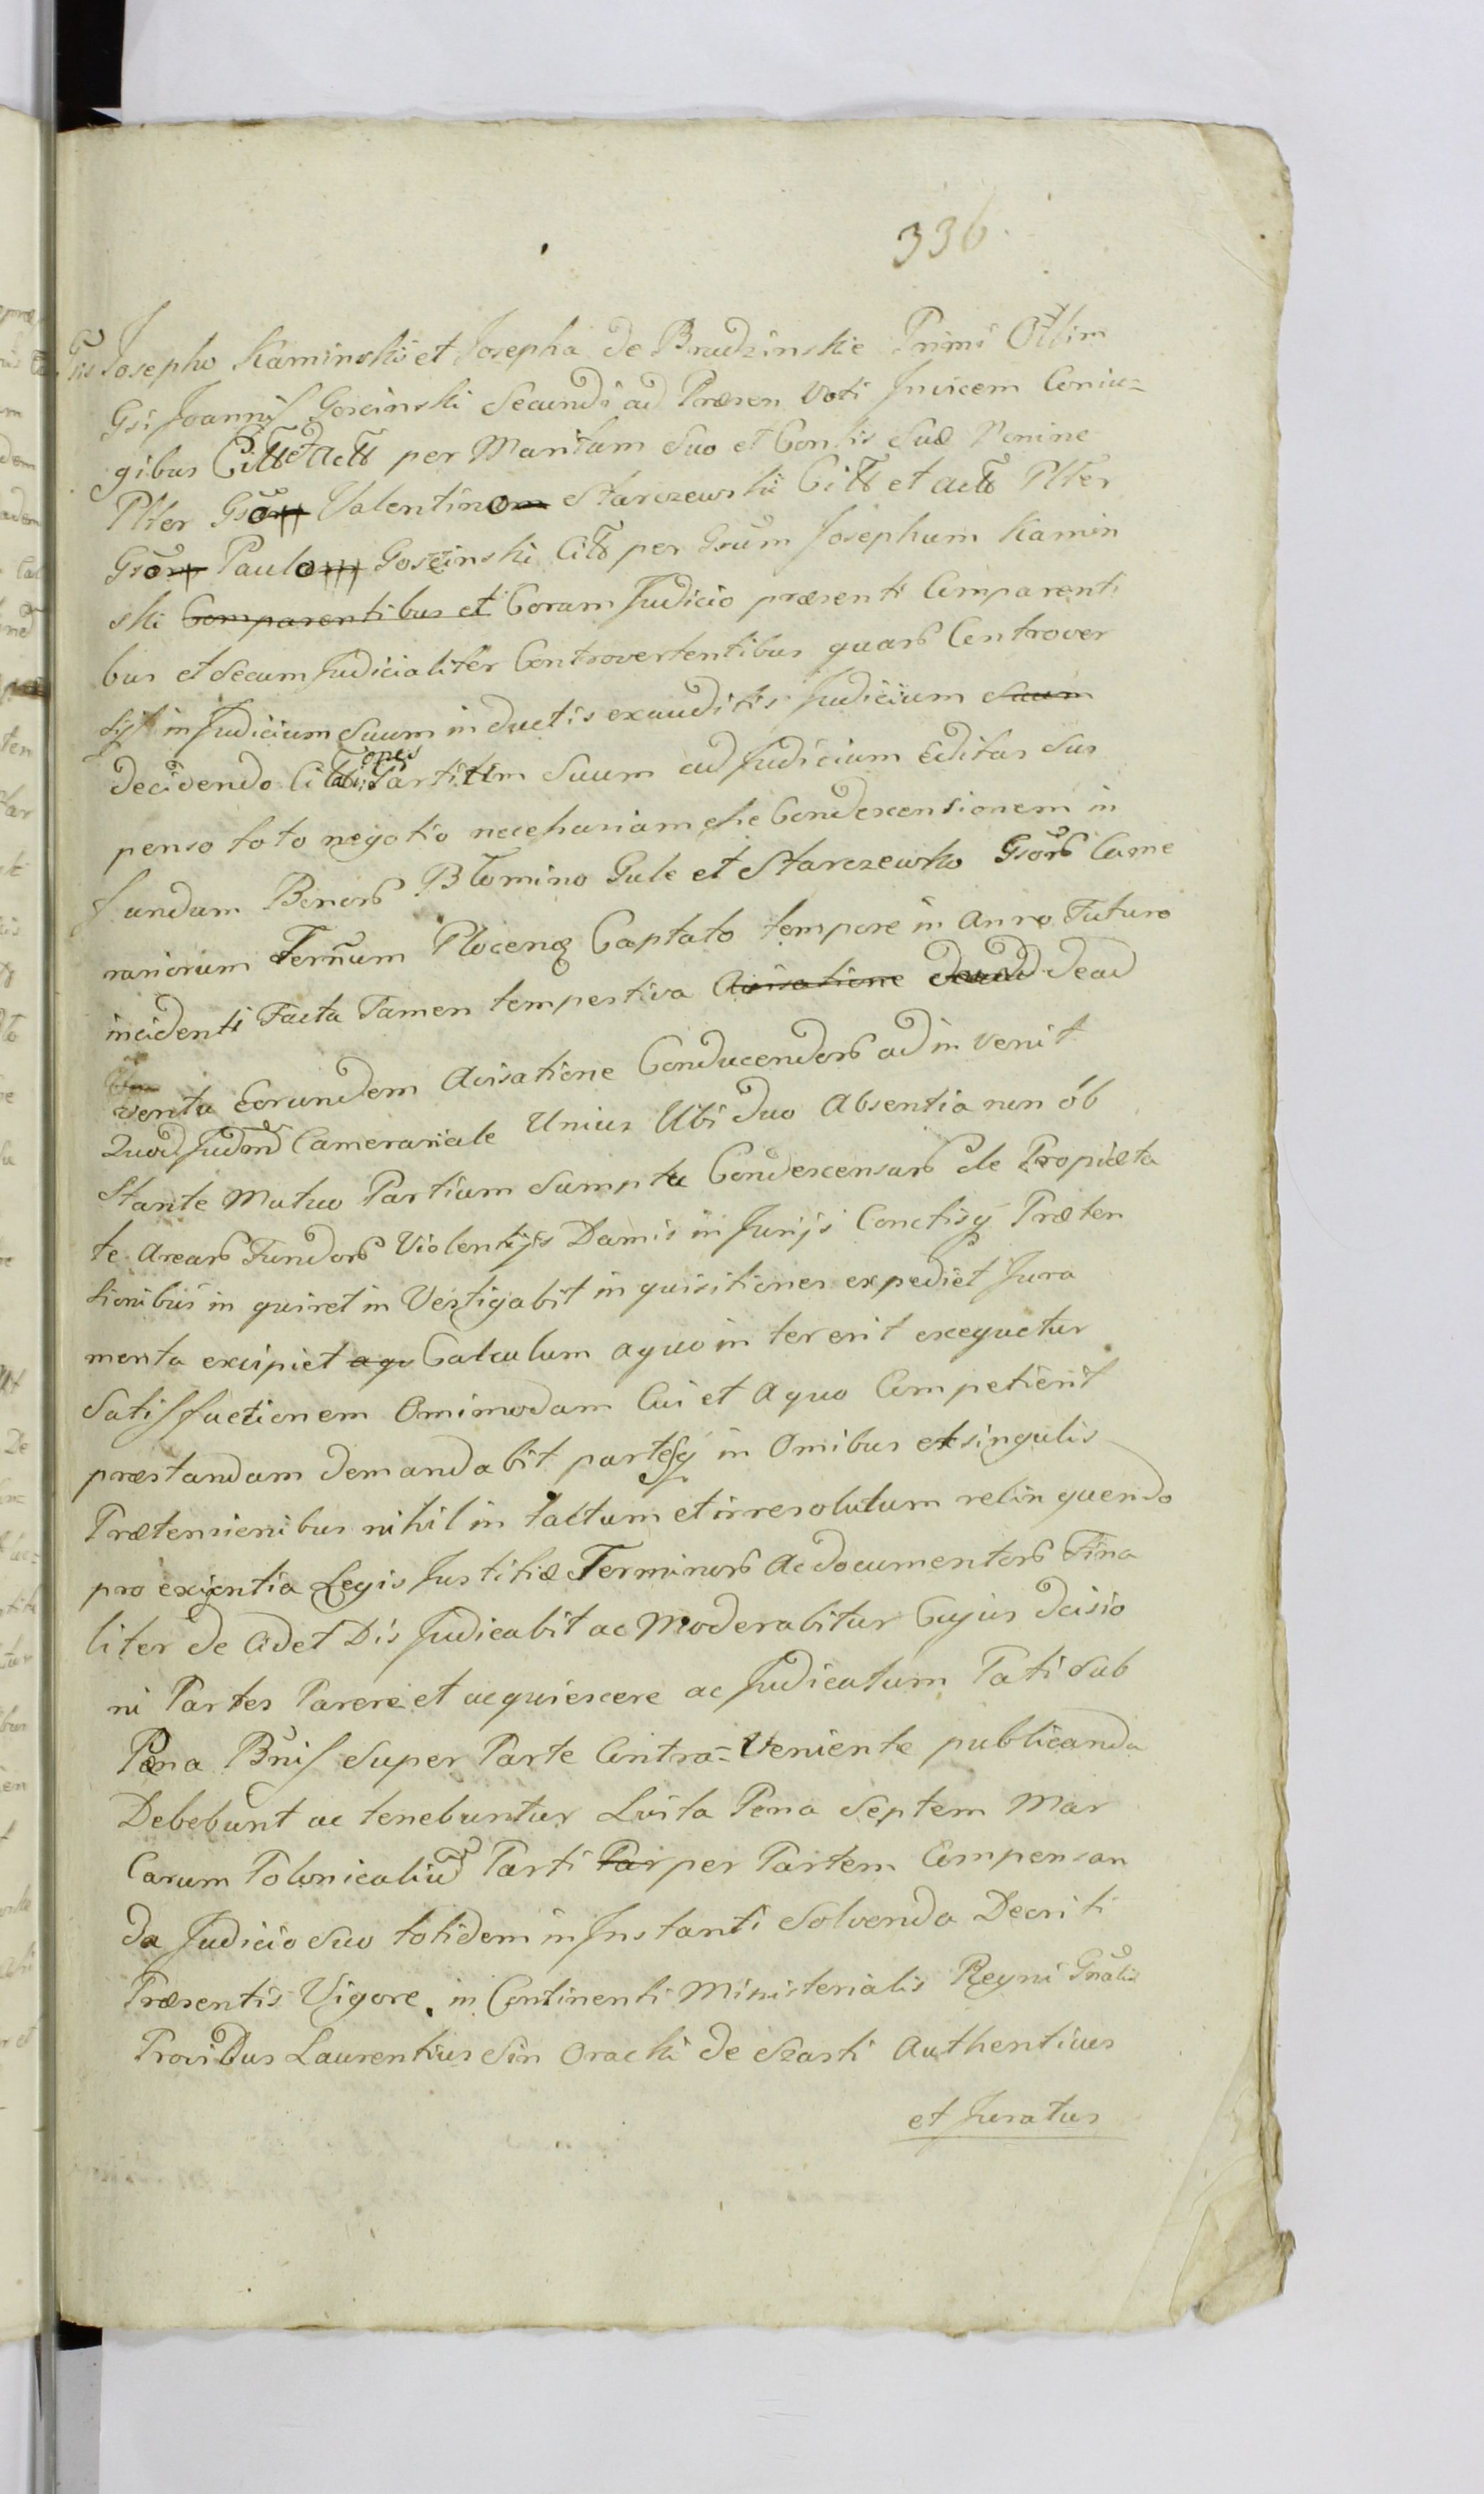 336
Gsis Josepho Kaminski et Josepha de Brudzinskie Primi Olim
Gsi Joannis Goscinski Secundi ad Præsen Voti Invicem Coniu=
gibus Citt et Actt per Maritum Suo et Contis Suæ Nomine
Plter Gso Valentino Starczewski Citt et actt Plter
Gso Paulo Goscinski Citt per Gsum Josephum Kamin
ski Comparentibus et Coram Judicio præsenti Comparenti
bus et Secum Judicialiter Controvertentibus quarb Controver
sys in Judicium Suum inductis exauditis Judicium Suum
decidendo Citationes Partium Suum ad Judicium Editas Sus
penso toto negotio necessariam esse Condescensionem in
fundum Bonorb Blomino Gule et Starczewko Gsorb Came
rariorum Ternum Plocens Captato tempore in Anno Futuro
incidenti Facta Tamen tempestiva Avisatione dead
ventu Eorundem Avisatione Conducendorb adinvenit
Quod Judm Camerariale Unius Ubi duo Absentia non ob
stante Mutuo Partium Sumptu Condescensurb de Propieta
te Arearb Fundorb Violentijs Damis injurijs Conctisq Præten
sionibus inquiret in Vestigabit inquisitiones expediet Jura
menta excipiet aqo Calculum aquo in tererit exequetur
Satisfactionem Omimodam Cui et Aquo Competierit
præstandam demandabit partesq in Omibus et singulis
Prætensionibus nihil in tactum et irresolutum relinquendo
pro exigentia Legis Justitiæ Terminorb Ac documentorb Fina
liter de Cidet Dis Judicabit ac Moderabitur Cujus dcisio
ni Partes Parere et acquiescere ac Judicatum Pati Sub
Pæna Bnis Super Parte Contra=Veniente publicanda
Debebunt ac tenebuntur Luita Pena Septem Mar
Carum Polonicaliu Parti Par per Partem Compensan
da Judicio Suo totidem in Instanti Solvenda Decriti
Præsentis Vigore. in Continenti Ministerialis Regni Gnalis
Providus Laurentius Sin Oracki de Szasti Authenticus
et Juratus